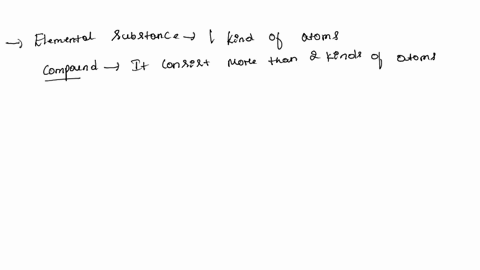 → Elemental Substance → 1 kind of atoms
Compound → It consist more than 2 kinds of atoms